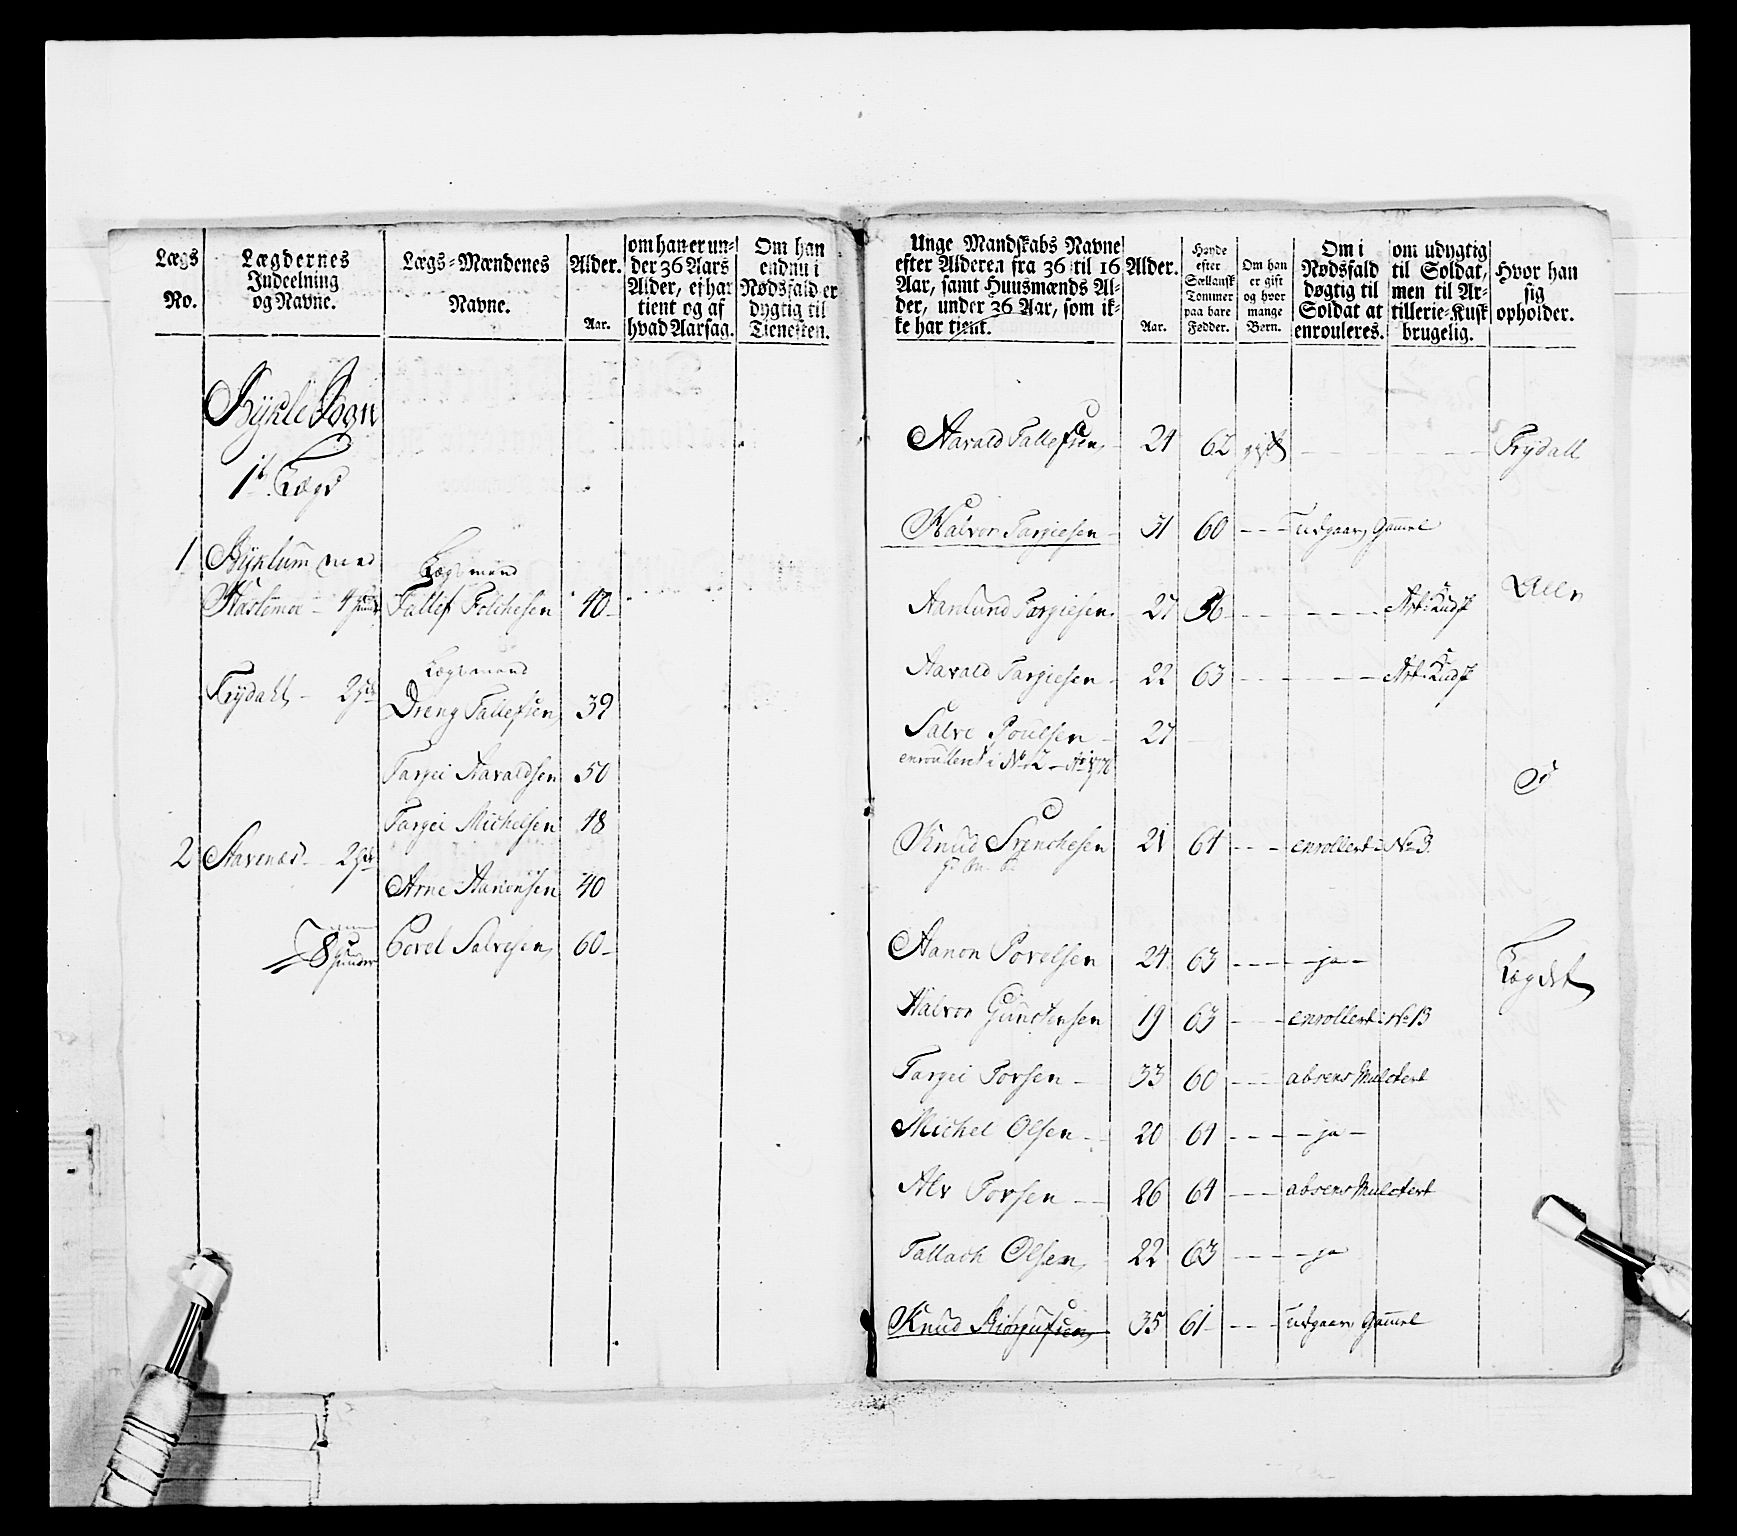 Lægs No.
Lægdernes Inddeelning og Navne.
Lægs=Mændenes Navne.
Alder. Aar.
om han er un=
der 36 Aars
Alder, ej har
tient og af
hvad Aarsag.
Om han
endnu i
Nødsfald er
dygtig til
Tienesten.
Bykle Sogn
1te Lægd
1 Byklum med Lægdsmand
Hastemoe - 4 Tallef Folchesen 40
Lægdsmand
Trydahl - 2 Dreng Tallefsen 39
Targei Aavaldsen 50
Targei Michelsen 48
2 Stavenæs - 2
Arne Aanonsen 40
8 Huuder Povel Salvesen 60
Unge Mandskabs Navne
efter Alderen fra 36 til 16
Aar, samt Huusmænds Al=
der, under 36 Aar, som ik=
ke har tient.
Alder. Aar.
Høyde
efter
Siellansk
Tommer
paa bare
Fødder.
Om han
er gift
og hvor
mange
Børn.
Om i
Nødsfald
døgtig til
Soldat at
enrouleres.
om udygtig
til Soldat,
men til Ar=
tillerie=Kusk
brugelig.
Hvor han
sig
opholder.
Aavald Tallefsen 24 62 gift Trydall
Halvor Targiesen 31 60 udgaar Gammel
Aanund Targiesen 27 56 Art: Kudsk
Aavald Targiesen 22 63 Art: Kudsk
Salve Poulsen 27
enroulleret i No 2
Knud Svenchesen 21 61 enrollert i No 3
Aanon Povelsen 24 63 ja Lægdet
Halvor Gunstensen 19 63 enrollert i No 13
Targei Torsen 33 60 absens Mulctert
Michel Olsen 20 61 ja
Alv Torsen 26 64 absens Mulctert
Tallach Olsen 22 63 ja
Knud Biørgufsen 35 61 udgaar Gammel